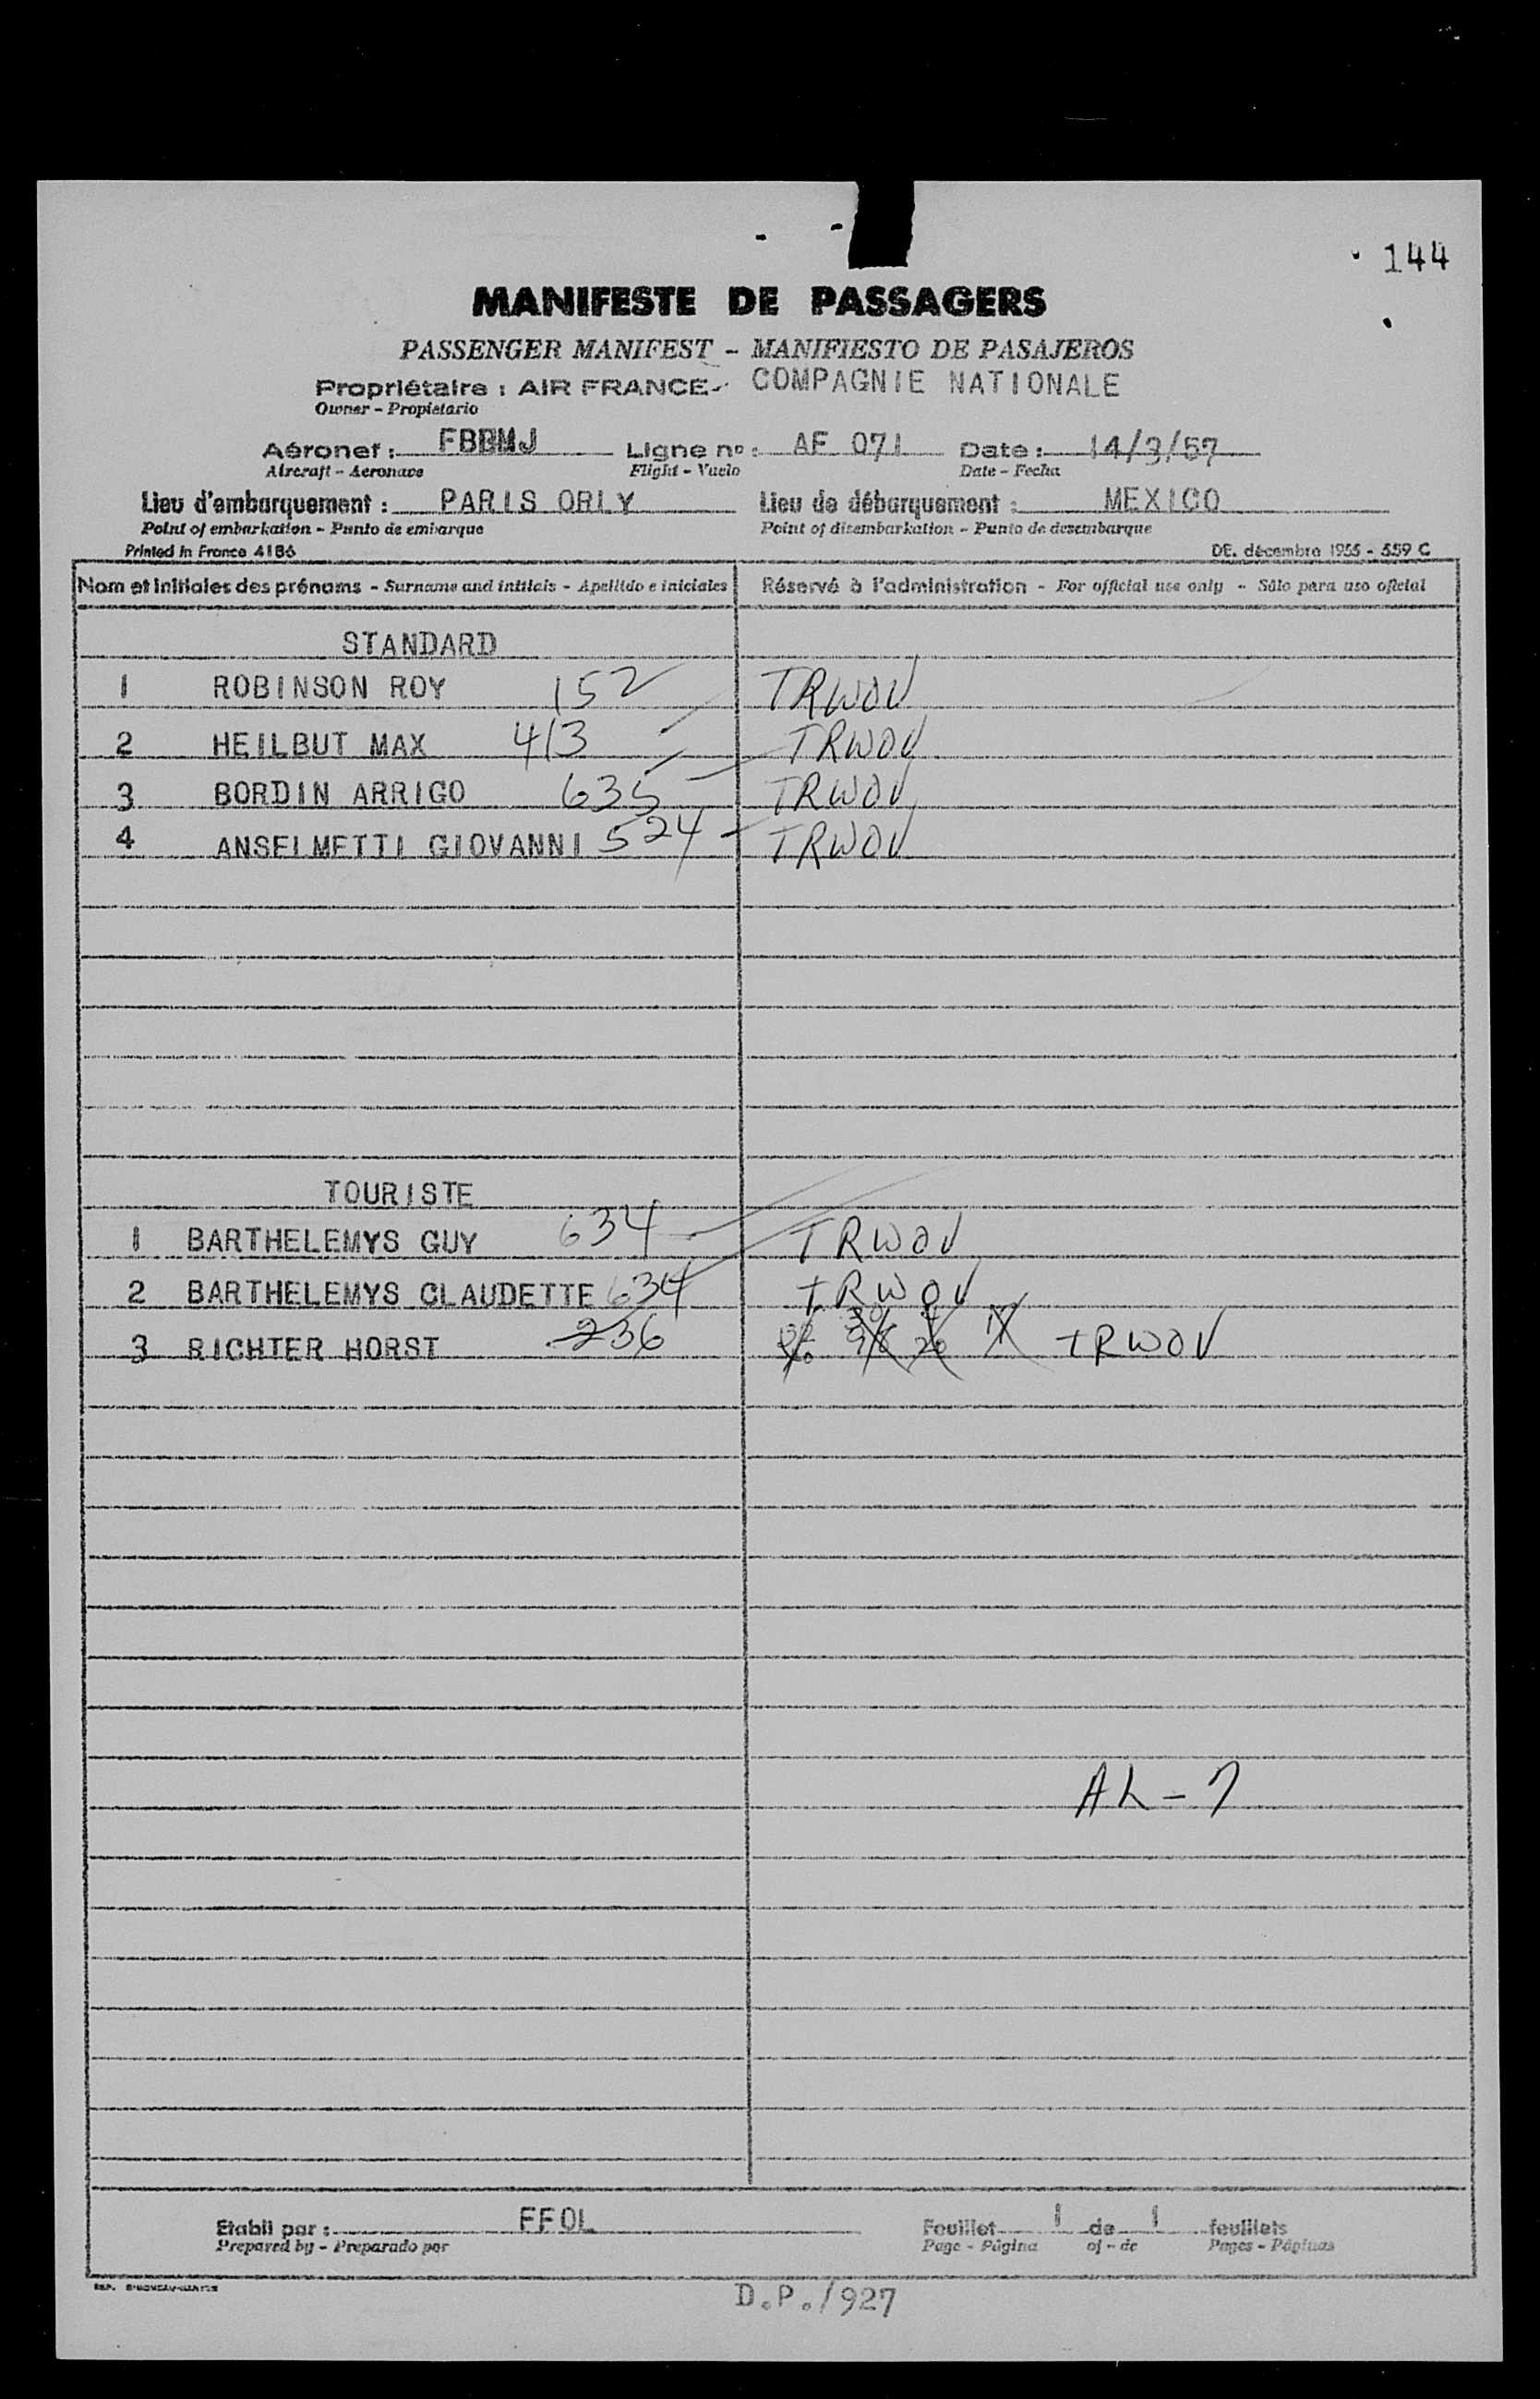 144
MANIFESTE DE PASSAGERS
PASSENGER MANIFEST - MANIFIESTO DE PASAJEROS
Propriétaire : AIR FRANCE - COMPAGNIE NATIONALE
Owner - Propietario
Aéronef : FBBMJ Ligne nº : AF 071 Date : 14/3/57
Aircraft - Aeronave Flight - Vuelo Date - Fecha
Lieu d'embarquement : PARIS ORLY Lieu de débarquement : MEXICO
Point of embarkation - Punto de embarque Point of disembarkation - Punto de desembarque
Printed in France 4186 DE. décembre 1955 - 559 C
Nom et initiales des prénoms - Surname and initials - Apellido e iniciales Réservé à l'administration - For official use only - Sólo para uso oficial
STANDARD
1 ROBINSON ROY 152 TRWOV
2 HEILBUT MAX 413 TRWOV
3 BORDIN ARRIGO 635 TRWOV
4 ANSELMETTI GIOVANNI 524 TRWOV
TOURISTE
1 BARTHELEMYS GUY 634 TRWOV
2 BARTHELEMYS CLAUDETTE 634 TRWOV
3 RICHTER HORST 236 TRWOV
AL - 7
Etabli par : FFOL Feuillet 1 de 1 feuillets
Prepared by - Preparado por Page - Página of - de Pages - Páginas
D.P./927